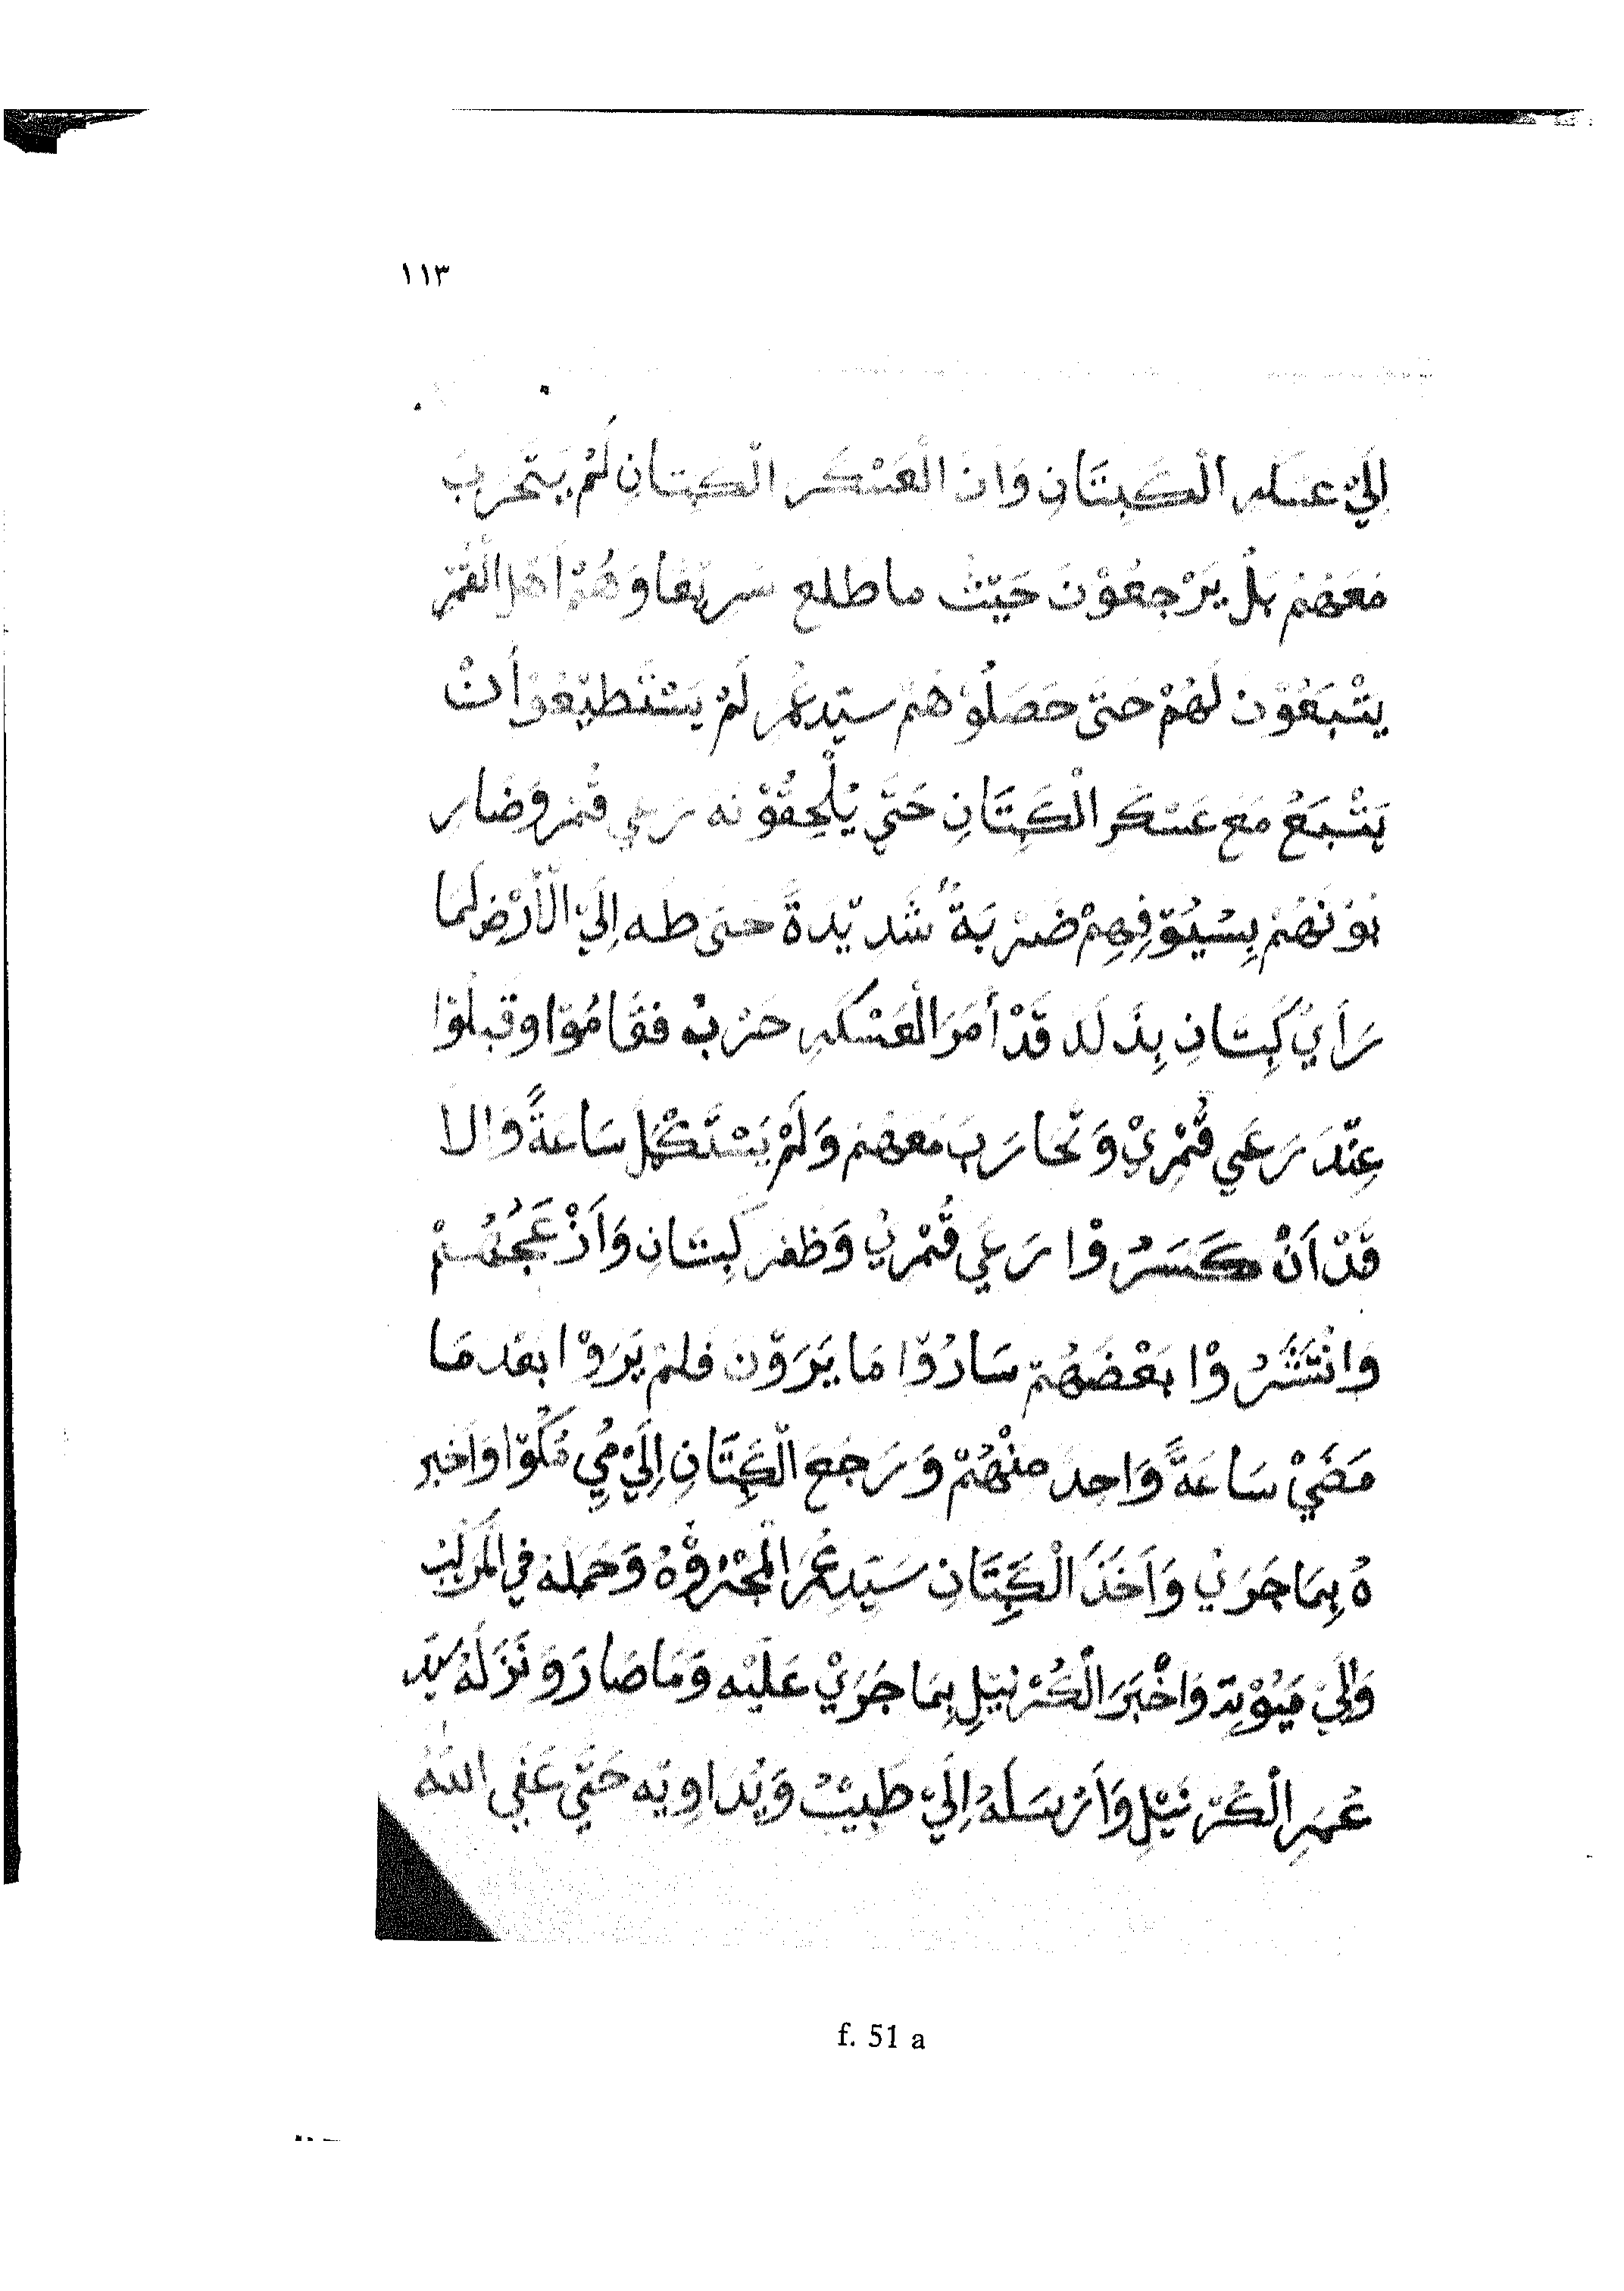 ١١٣
اِلَيْ عسكر الْكَبِتَانِ وَاَنَ الْعَسْكَر الْكَبِتانِ لَمْ يَتْحَرَبَ
مَعَهُمْ بَلْ يَرْجِعُوْنَ حَيْثُ ما طلع سَرِيْعًا وَهُمْ اَهْل الْقُمْرْ
يَتْبَعُوْنَ لَهُمْ حَتّى حَصَلُوْ هَمْ سيّد عُمر لَمْ يَسْتَطِيْعُوْا أَنْ
يَتْبَعُ مَعَ عَسْكَر الْكَبِتَانِ حَتَّي يُلْحِقُوْنَهُ رعي قُمْر وَضَار
بُوْنَهُمْ بِسُيُوْفِهِمْ ضَرْبَةً شَدِيْدَةً حَتى طه اِلَيْ الْأَرْضِ لَمَا
رَأَيْ كَبِتَانِ بِذَلَك قَدْ أَمَرَ الْعَسْكَرِ حَرْبْ فقَامُوْا وقبلُوْا
عِنْدَ رَعَي قُمْرِيْ وَتَحَارَبَ مَعَهُمْ وَلَمْ يَسْتَكْمِلْ سَاعَةً وَالا
قَدْ اَنْ كَسَرُوْا رَعَي قُمْرِيْ وَظفر كَبِتَانِ وَاَذْ عَجُهُمْ
وَانْتَشَرُوْا بَعْضَهُمْ سَارُوْا مَا يَرَوْنَ فلمْ يَرَوْا بعْد مَا
مَضَيْ سَاعَةً وَاحِدَ منْهُمْ وَرَجَعَ الْكَبِتَانِ اِلَيْ مُي مُكُوْا وَاَخبر
هُ بِمَا جَرَيْ وَاَخَذَ الْكَبِتَانِ سَيّد عُمَر الْمَجْرُوْهُ وَحَمَلهُ في الْمَركبْ
وَاِلَيْ مَيُوْتِه وَاَخْبَرَ الْكُرْنيْلِ بِمَا جَرَيْ عَلَيْه وَمَا صَارَ وَنَزَلَهُ سَيّد
عُمَرِ الْكُرْنَيْلِ وَأَرْسَلَهُ اِلَيْ طَبِيْبْ وَيُدَاوِيْه حَتَّي عَفي اللهُ
f. 51 a